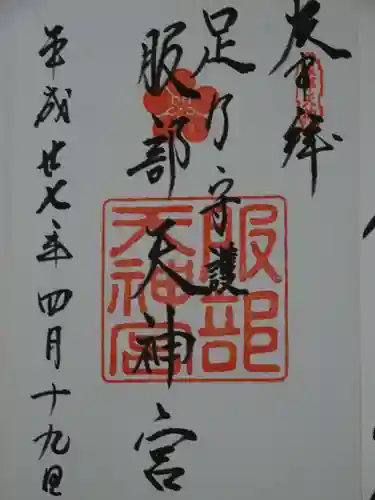 奉拝
足乃守護
服部天神宮
服部
天神宮
平成廿七年四月十九日